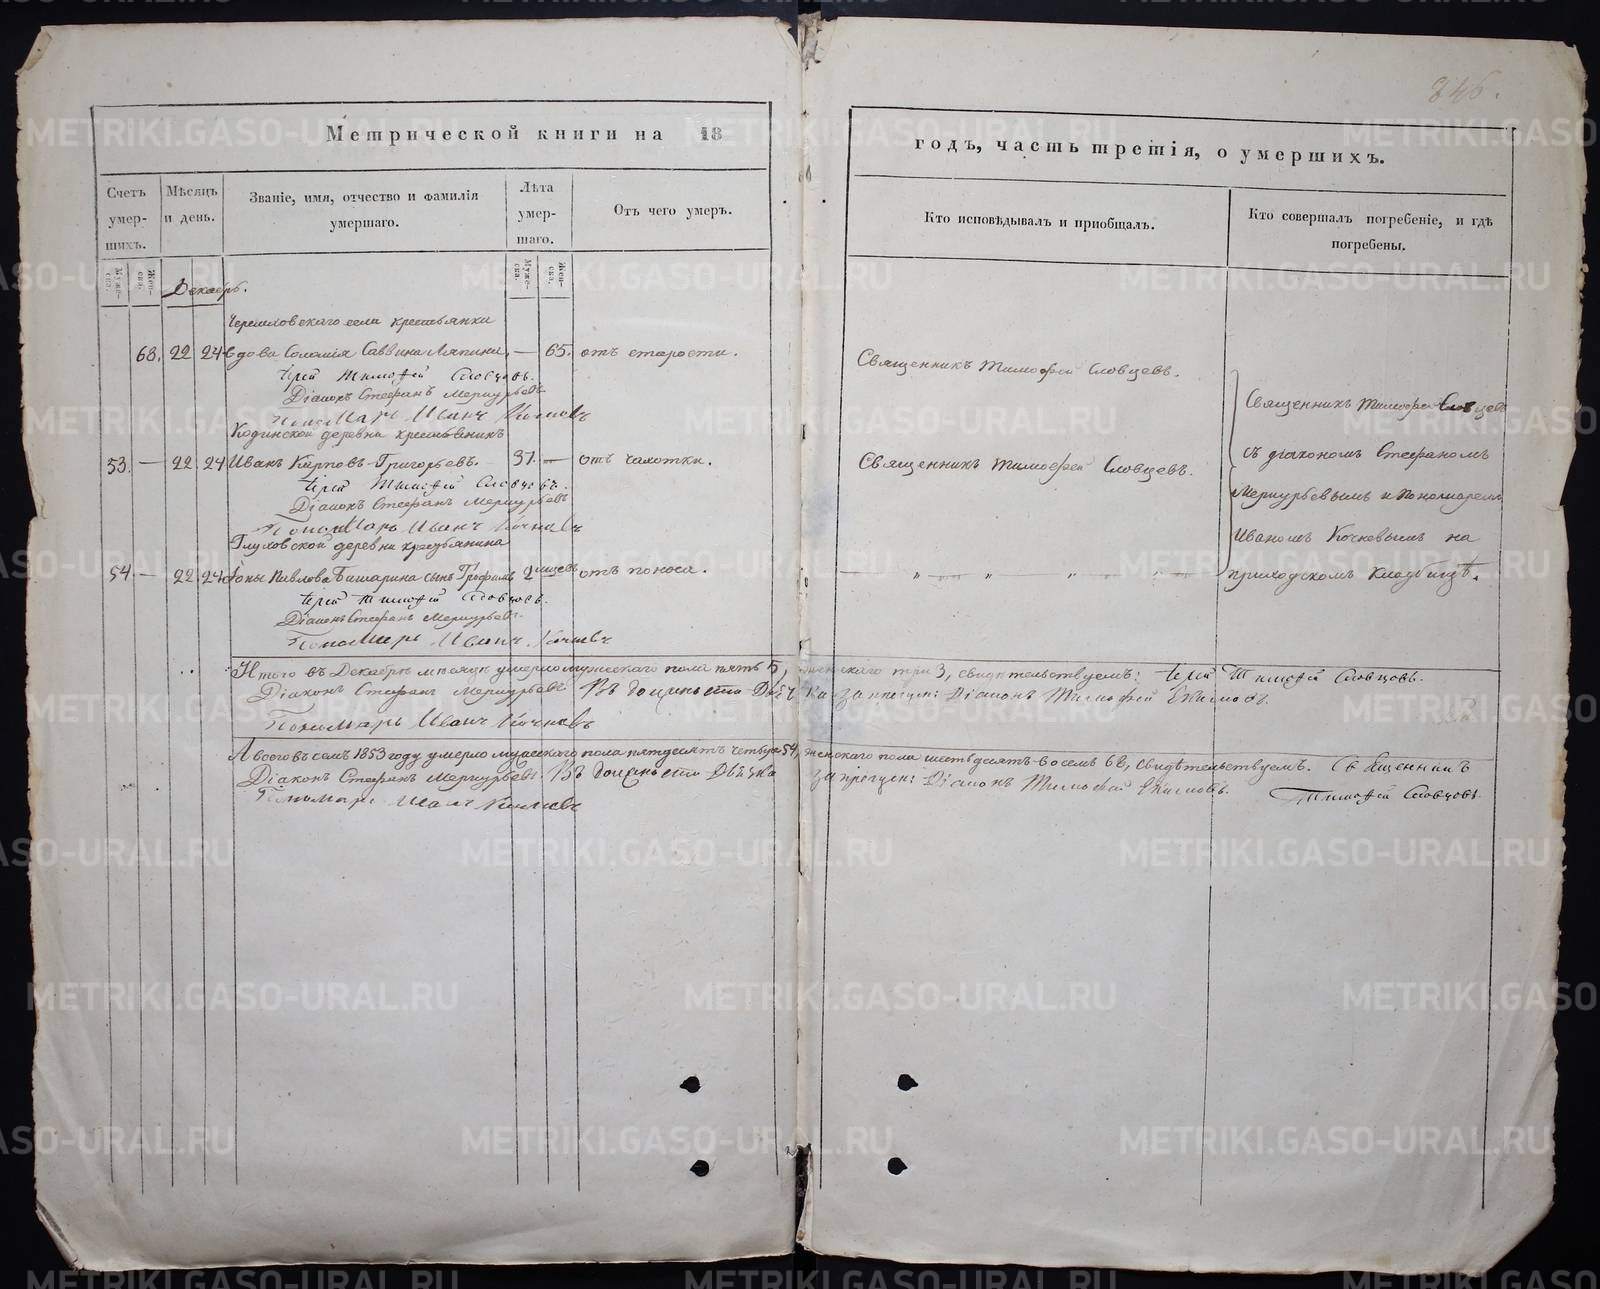 846.
Метрической книги на 18
годъ, часть третія, о умершихъ.
Счетъ умер-шихъ.
Мѣсяцъ и день.
Званіе, имя, отчество и фамилія умершаго.
Лѣта умер-шаго.
Отъ чего умеръ.
Кто исповѣдывалъ и пріобщалъ.
Кто совершалъ погребеніе, и гдѣ погребены.
Муже-ска. Жен-ска.
Муже-ска. Жен-ска.
Декабрь.
села крестьянка
68. 22 24 вдова Соломія Саввина — 65. отъ старости.
Іерей Тимофей Словцовъ.
Діаконъ Стефанъ Меркурьевъ
Пономарь Иванъ Кочневъ
Священникъ Тимофей Словцевъ.
Кодинской деревни крестьянинъ
53. — 22 24 Иванъ Карповъ Григорьевъ. 37. — отъ чахотки.
Іерей Тимофей Словцовъ.
Діаконъ Стефанъ Меркурьевъ
Пономарь Иванъ Кочневъ
Священникъ Тимофей Словцевъ.
Глуховской деревни крестьянина
54. — 22 24 Іоны Павлова Башарина сынъ 2 мѣсяц. отъ поноса.
Іерей Тимофей Словцовъ.
Діаконъ Стефанъ Меркурьевъ
Пономарь Иванъ Кочневъ
Священникъ Тимофей Словцевъ
съ діакономъ Стефаномъ
Меркурьевымъ и Пономаремъ
Иваномъ Кочневымъ на
приходскомъ кладбищѣ.
Итого въ Декабрѣ мѣсяцѣ умерло мужескаго пола пять 5, женскаго три 3, свидѣтельствуемъ: Іерей Тимофей Словцовъ.
Діаконъ Стефанъ Меркурьевъ Въ должности Дьячка запрещен: Діаконъ Тимофей Екимовъ.
Пономарь Иванъ Кочневъ
А всего въ семъ 1853 году умерло мужескаго пола пятдесятъ четыре 54, женскаго пола шестьдесятъ восемь 68, свидѣтельствуемъ. Священникъ
Діаконъ Стефанъ Меркурьевъ. Въ должности Дьячка запрещен: Діаконъ Тимофей Екимовъ. Тимофей Словцовъ.
Пономарь Иванъ Кочневъ
METRIKI.GASO-URAL.RU